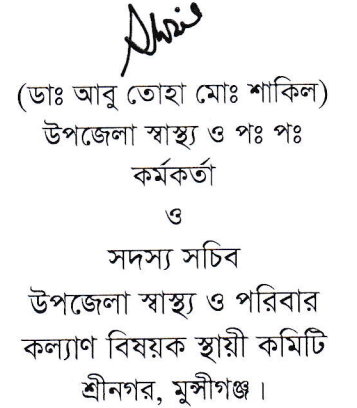 (ডাঃ আবু তোহা মোঃ শাকিল)
উপজেলা স্বাস্থ্য ও পঃ পঃ
কর্মকর্তা
ও
সদস্য সচিব
উপজেলা স্বাস্থ্য ও পরিবার
কল্যাণ বিষয়ক স্থায়ী কমিটি
শ্রীনগর, মুন্সীগঞ্জ।